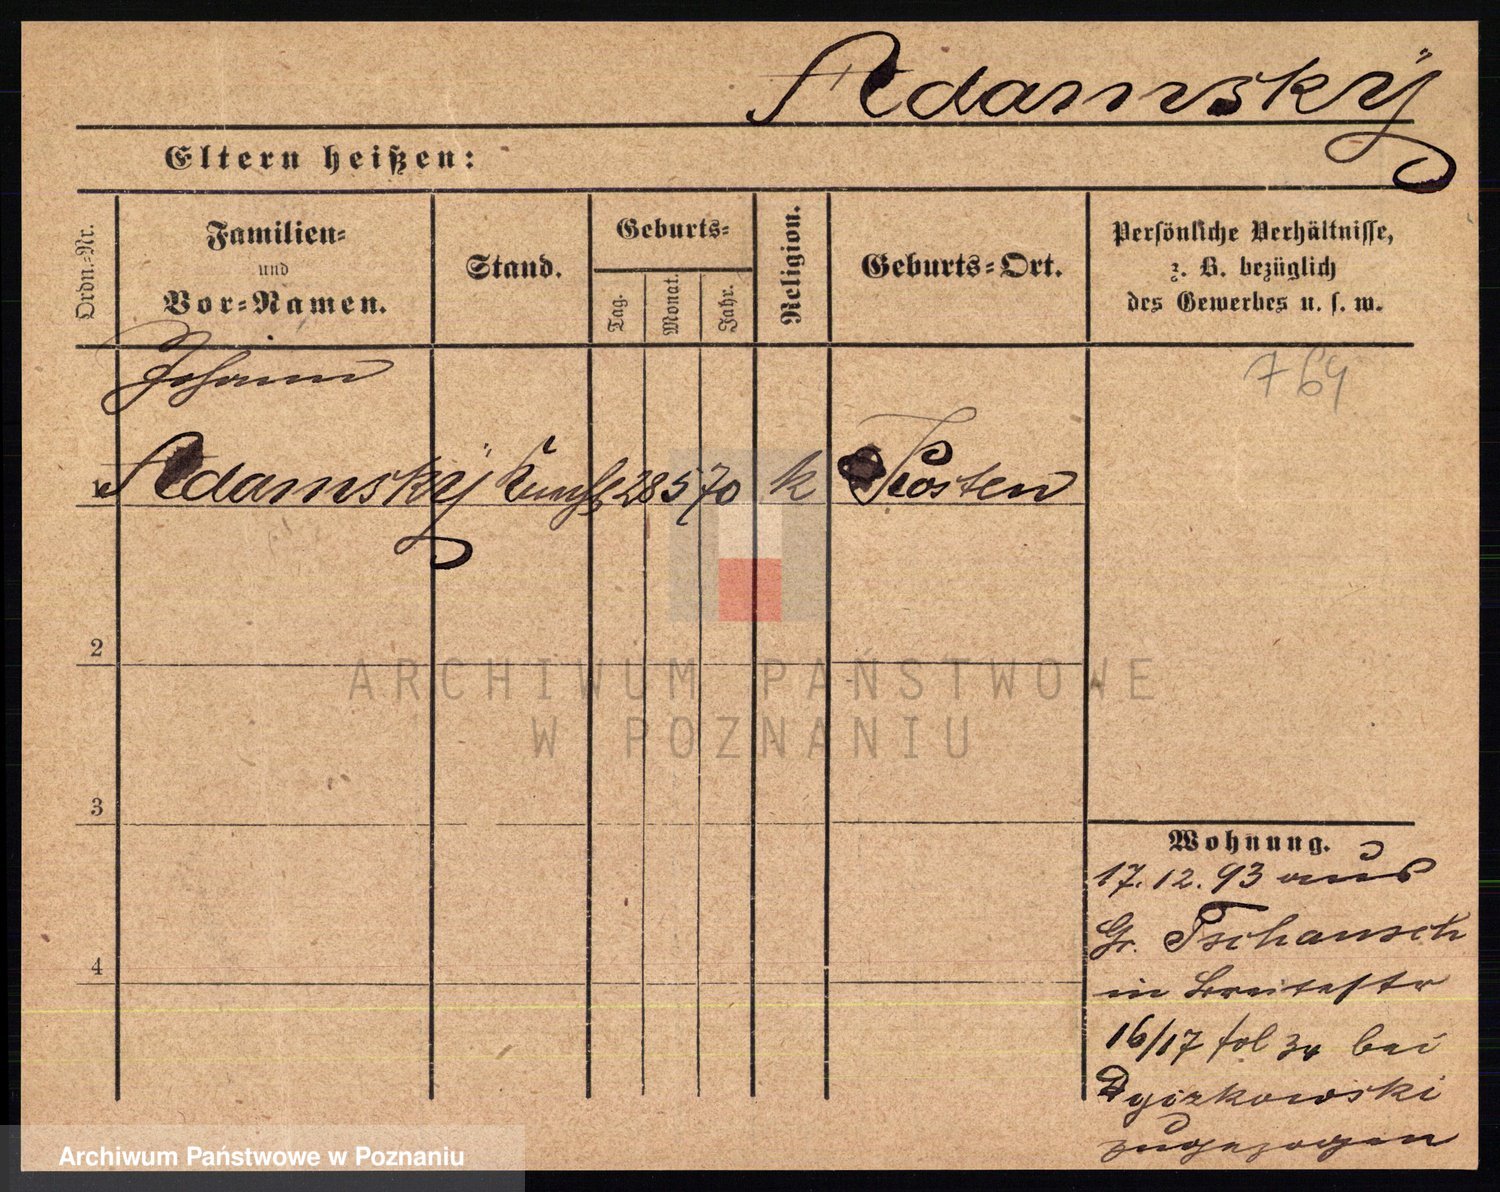 Adamskÿ
Eltern heißen:
Ordn.-Nr.
Familien-
und
Vor-Namen.
Stand.
Geburts-
Tag.
Monat.
Jahr.
Religion.
Geburts-Ort.
Persönliche Verhältnisse,
z. B. bezüglich
des Gewerbes u. s. w.
Johann
764
1 Adamskÿ 28 5 70 k Kosten
2
3
4
Wohnung.
17.12.93 aus
Gr. Tschansch
in Breitestr
16/17 fol 34 bei
zugezogen
ARCHIWUM PAŃSTWOWE
W POZNANIU
Archiwum Państwowe w Poznaniu